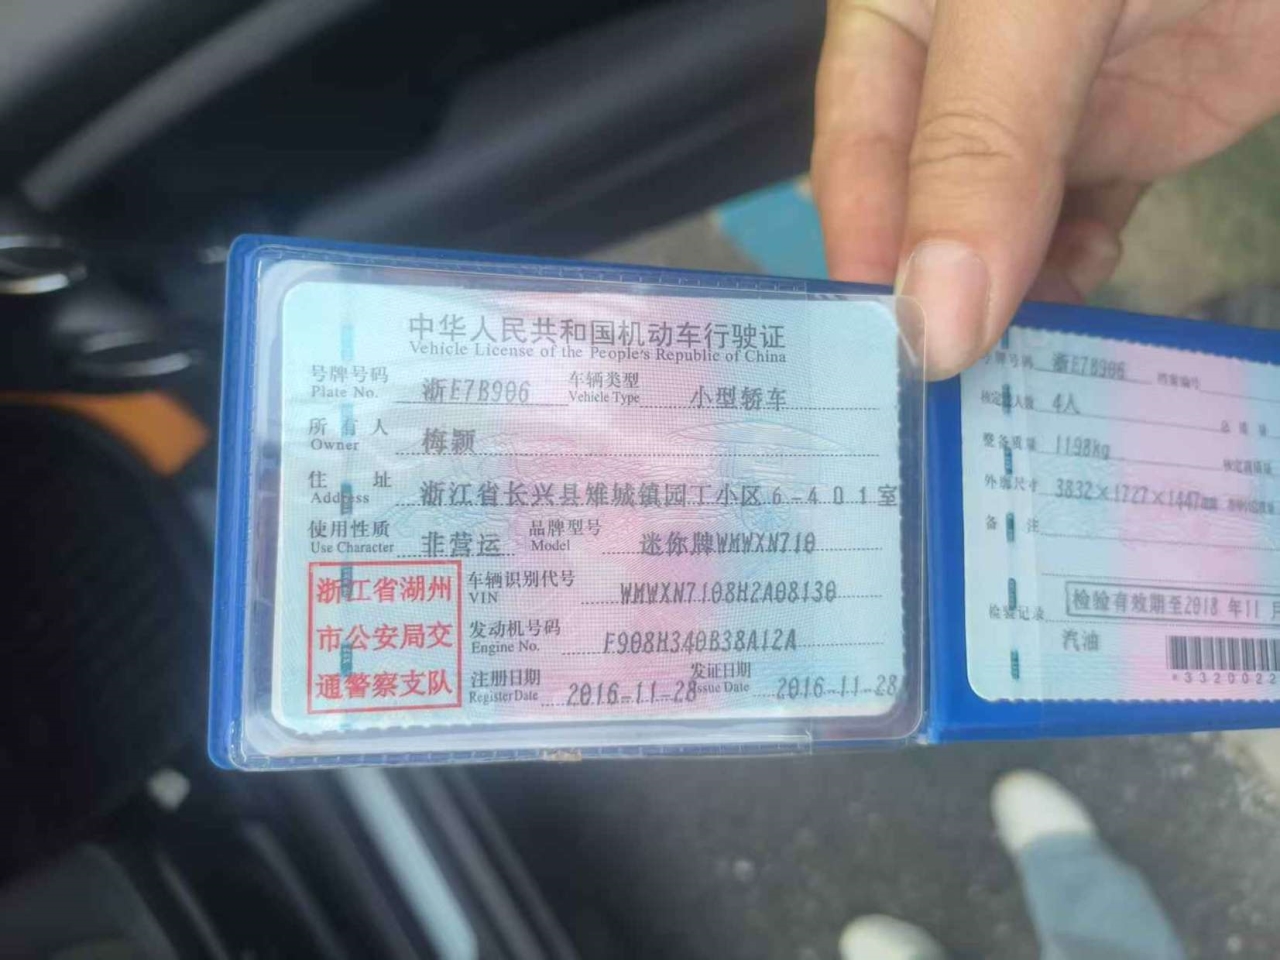 中华人民共和国机动车行驶证
Vehicle License of the People's Republic of China
号牌号码 浙E7B906 车辆类型 小型轿车
Plate No. Vehicle Type
所有人 梅颖
Owner
住址 浙江省长兴县雉城镇园丁小区6-401室
Address
使用性质 非营运 品牌型号 迷你牌WMWXN710
Use Character Model
浙江省湖州
市公安局交
通警察支队
车辆识别代号 WMWXN7108H2A08130
VIN
发动机号码 F908H340B38A12A
Engine No.
注册日期 2016-11-28 发证日期 2016-11-28
Register Date Issue Date
号牌号码 浙E7B906 档案编号
4人
整备质量 1198kg
外廓尺寸 3832×1727×1447mm
备注
检验记录 检验有效期至2018年11
汽油
*3320022